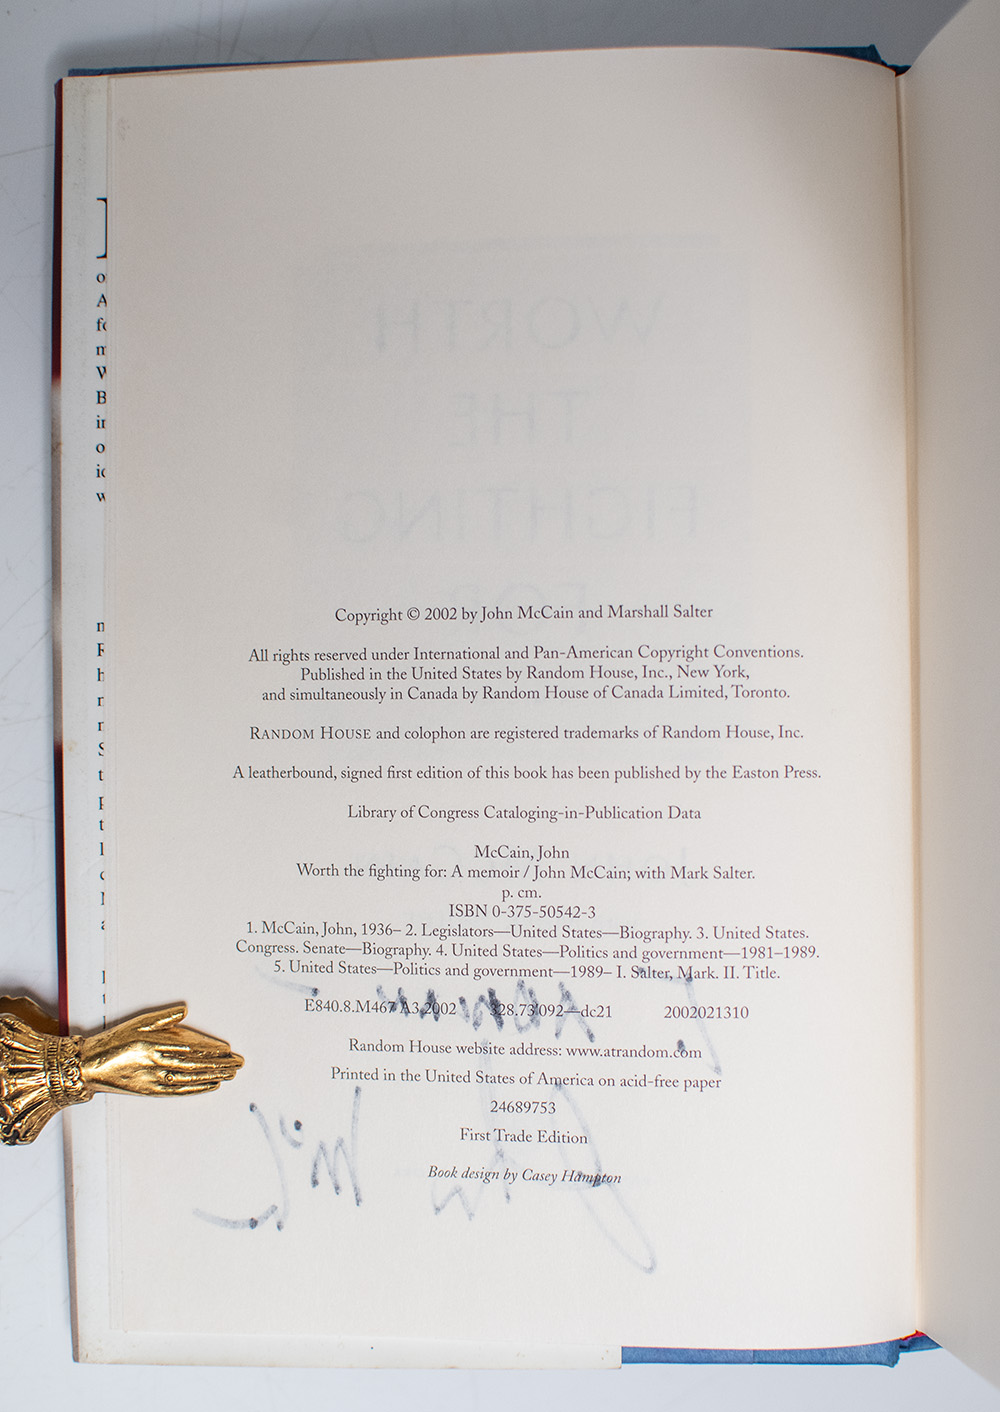 WORTH
THE
FIGHTING
FOR
Copyright © 2002 by John McCain and Marshall Salter
All rights reserved under International and Pan-American Copyright Conventions.
Published in the United States by Random House, Inc., New York,
and simultaneously in Canada by Random House of Canada Limited, Toronto.
RANDOM HOUSE and colophon are registered trademarks of Random House, Inc.
A leatherbound, signed first edition of this book has been published by the Easton Press.
Library of Congress Cataloging-in-Publication Data
McCain, John
Worth the fighting for: A memoir / John McCain; with Mark Salter.
p. cm.
ISBN 0-375-50542-3
1. McCain, John, 1936– 2. Legislators—United States—Biography. 3. United States.
Congress. Senate—Biography. 4. United States—Politics and government—1981–1989.
5. United States—Politics and government—1989– I. Salter, Mark. II. Title.
E840.8.M467 A3 2002 328.73'092—dc21 2002021310
Random House website address: www.atrandom.com
Printed in the United States of America on acid-free paper
24689753
First Trade Edition
Book design by Casey Hampton